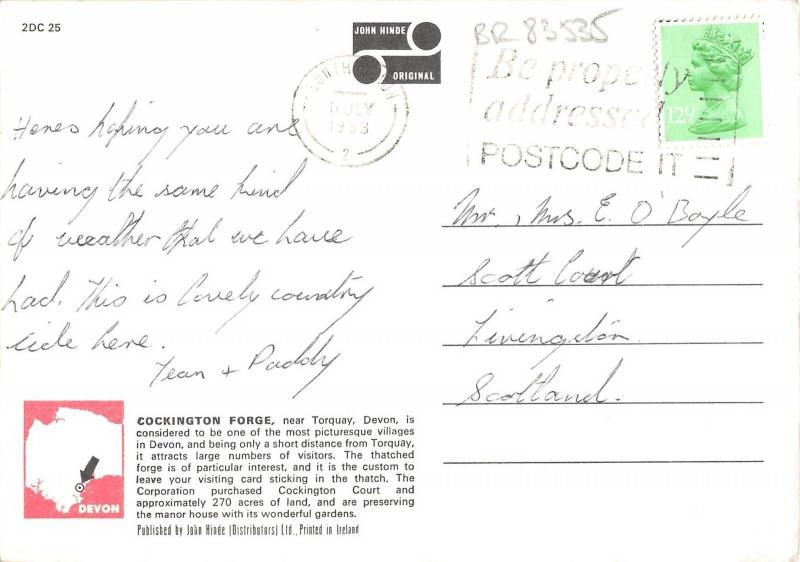 2DC 25
JOHN HINDE
ORIGINAL
BR 83535
JULY
1983
2
Be properly
addressed
POSTCODE IT
12½P
Heres hoping you are
having the same kind
of weather that we have
had. This is lovely country
side here.
Jean + Paddy
Mr, Mrs. E. O'Boyle
Scott Court
Livingston.
Scotland.
DEVON
COCKINGTON FORGE, near Torquay, Devon, is
considered to be one of the most picturesque villages
in Devon, and being only a short distance from Torquay,
it attracts large numbers of visitors. The thatched
forge is of particular interest, and it is the custom to
leave your visiting card sticking in the thatch. The
Corporation purchased Cockington Court and
approximately 270 acres of land, and are preserving
the manor house with its wonderful gardens.
Published by John Hinde (Distributors) Ltd., Printed in Ireland